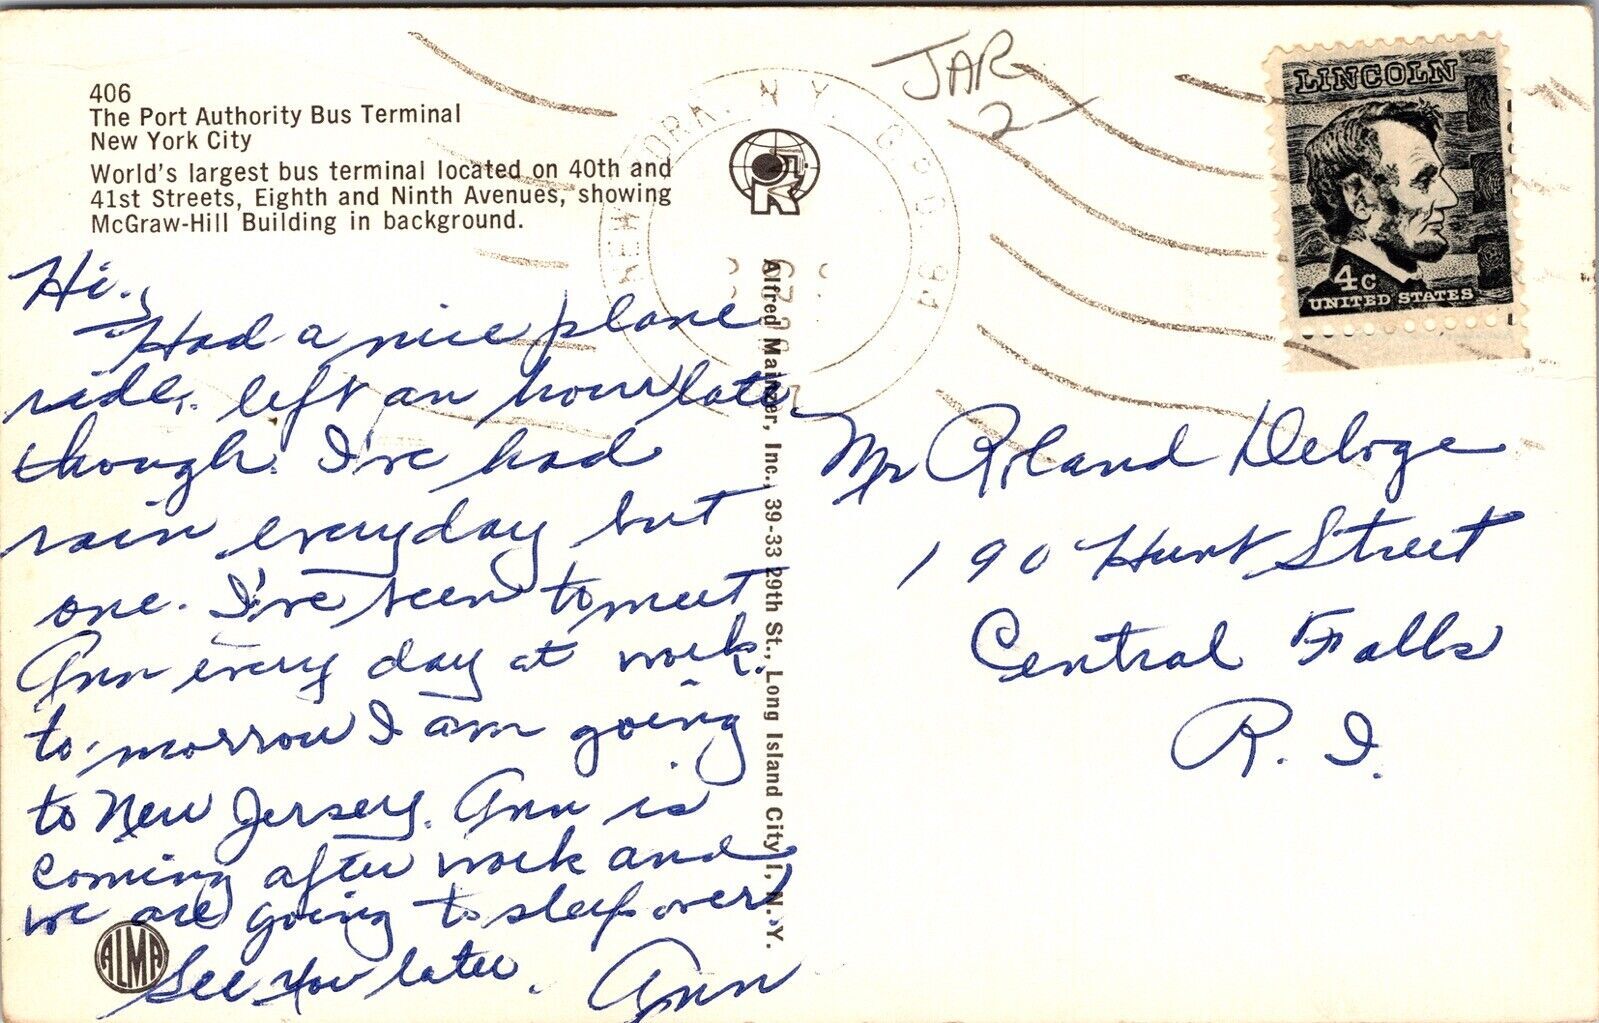 406
The Port Authority Bus Terminal
New York City
World's largest bus terminal located on 40th and
41st Streets, Eighth and Ninth Avenues, showing
McGraw-Hill Building in background.
Hi,
Had a nice plane
ride, left an hour late
though. I've had
rain everyday but
one. I've been to meet
Ann every day at work.
to-morrow I am going
to New Jersey. Ann is
coming after work and
we are going to sleep over.
See you later.
Ann
ALMA
Alfred Mainzer, Inc., 39-33 29th St., Long Island City 1, N.Y.
K
JAR
2
NEW YORK, N.Y. G.P.O.
LINCOLN
4c
UNITED STATES
Mr Roland Deloge
190 Hunt Street
Central Falls
R. I.